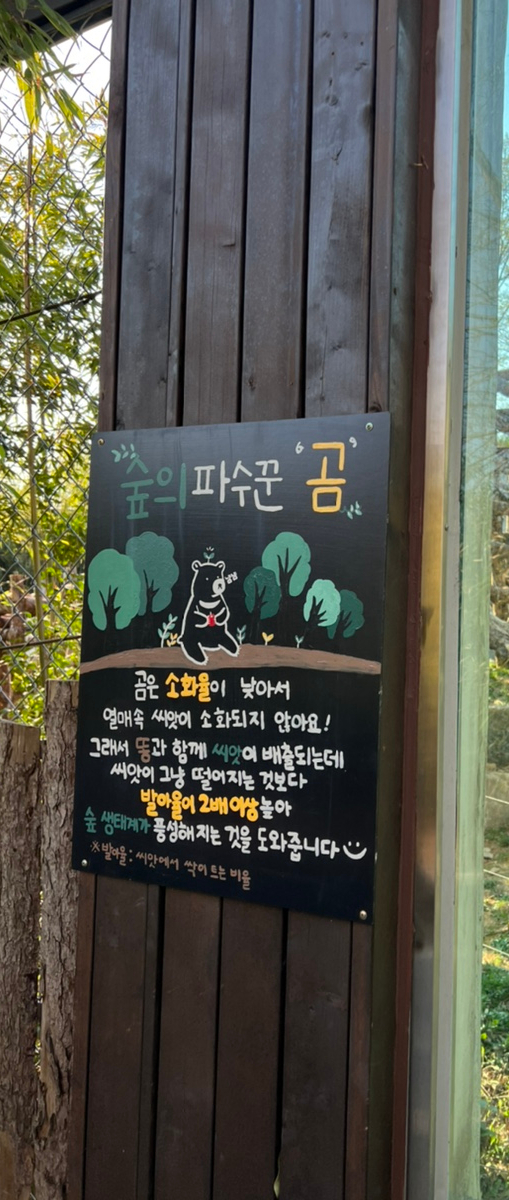 숲의 파수꾼 '곰'
냠냠
곰은 소화율이 낮아서
열매속 씨앗이 소화되지 않아요!
그래서 똥과 함께 씨앗이 배출되는데
씨앗이 그냥 떨어지는 것보다
발아율이 2배이상 높아
숲 생태계가 풍성해지는 것을 도와줍니다
※발아율: 씨앗에서 싹이 트는 비율